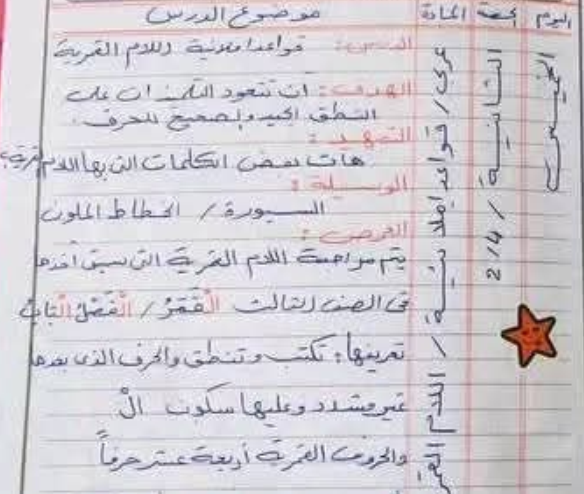 اليوم
الحصة
المادة
موضوع الدرس
الخميس
الثانية
2/4/
عربى / قواعد إملائية / اللام القمرية
الدرس: قواعد إملائية اللام القمرية
الهدف: أن تتعود التلميذات على
النطق الجيد والصحيح للحرف.
التمهيد:
هات بعض الكلمات التى بها اللام قمرية؟
الوسيلة:
السبورة / الخطاط الملون
العرض:
يتم مراجعة اللام القمرية التى سبق أخذها
فى الصف الثالث الْقَمَرُ / الْفَصْلُ الْبَابُ
تعريفها: تكتب وتنطق والحرف الذى بعدها
غير مشدد وعليها سكون الْ
والحروف القمرية أربعة عشر حرفاً